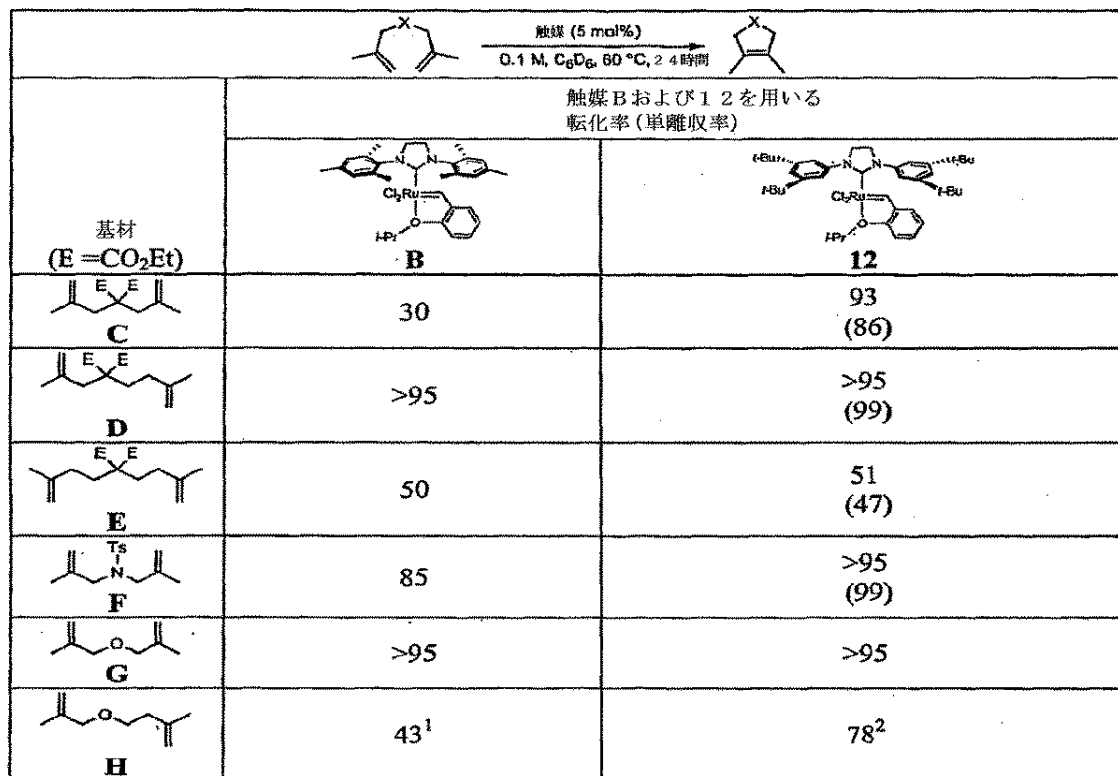 X
触媒 (5 mol%)
0.1 M, C₆D₆, 60 °C, 24時間
X
触媒Bおよび12を用いる
転化率(単離収率)
基材
(E =CO₂Et)
N N
Cl₂Ru
O
i-Pr
B
t-Bu N N t-Bu
t-Bu t-Bu
Cl₂Ru
O
i-Pr
12
E E
C
30
93
(86)
E E
D
>95
>95
(99)
E E
E
50
51
(47)
Ts
N
F
85
>95
(99)
O
G
>95
>95
O
H
43¹
78²